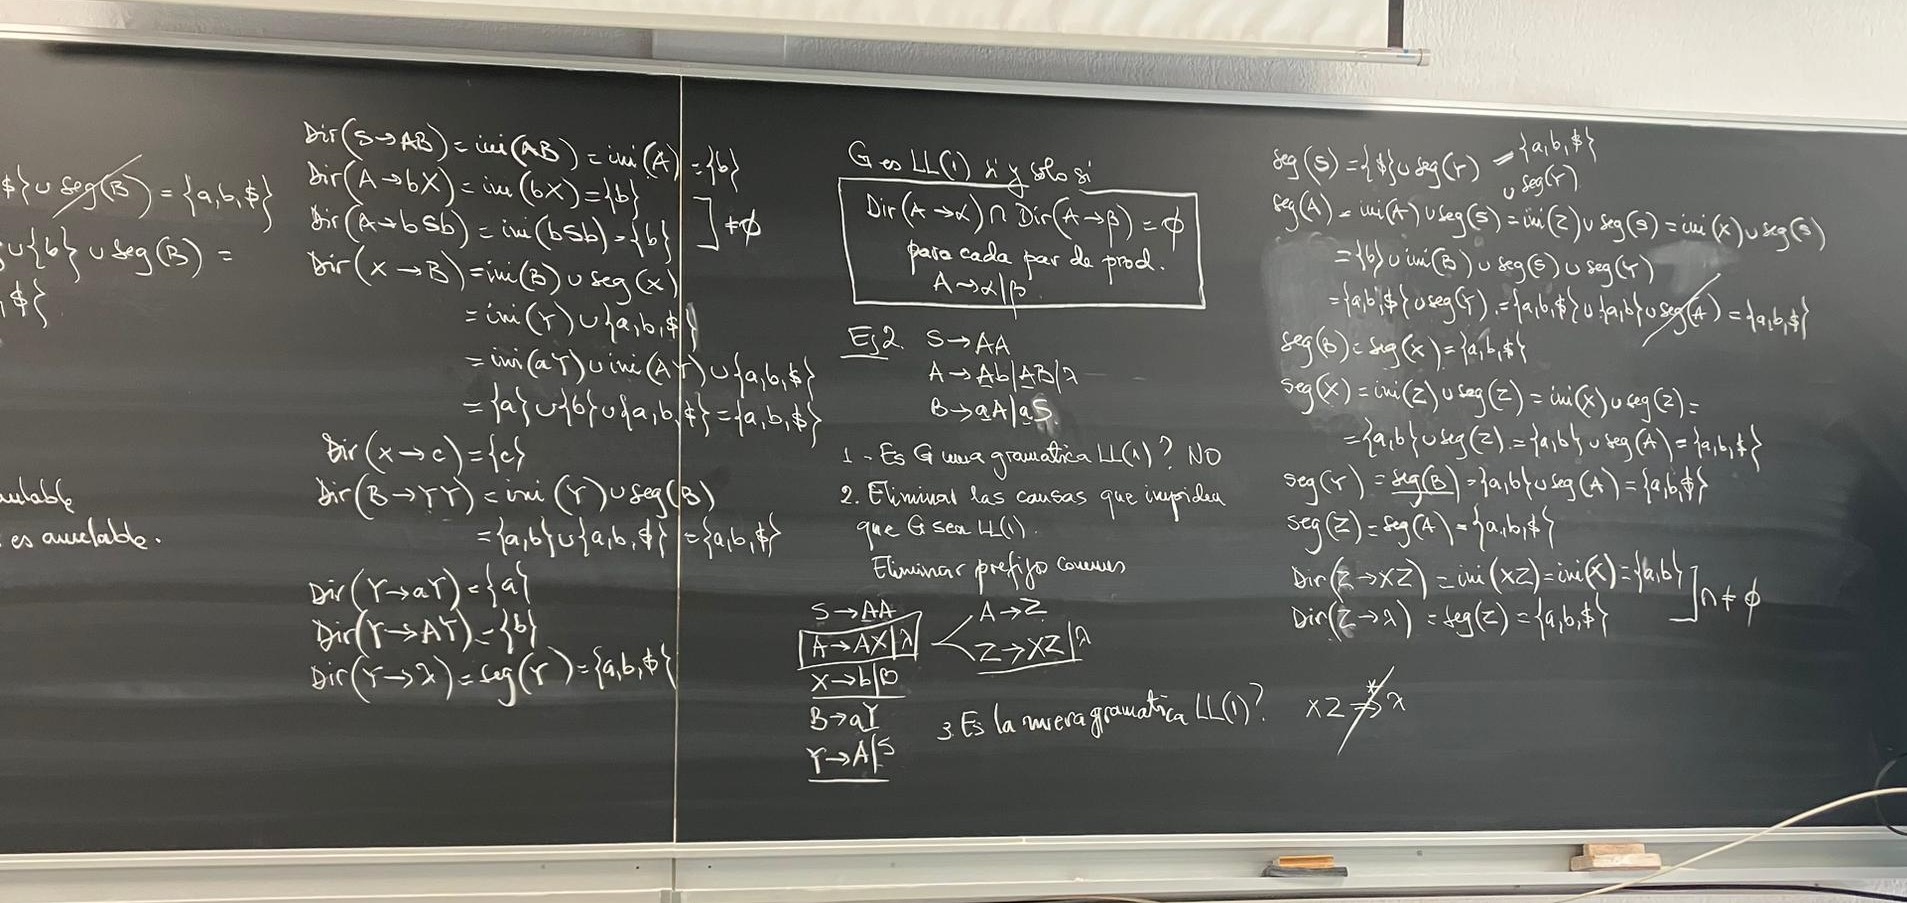 $} ∪ Seg(B) = {a,b,$}
∪{b} ∪ Seg(B) =
,$}
es anulable.
Dir(S→AB) = ini(AB) = ini(A) = {b}
Dir(A→bX) = ini(bX) = {b}
Dir(A→bSb) = ini(bSb) = {b} ] ≠ ∅
Dir(X→B) = ini(B) ∪ seg(X)
= ini(Y) ∪ {a,b,$}
= ini(aY) ∪ ini(AY) ∪ {a,b,$}
= {a} ∪ {b} ∪ {a,b,$} = {a,b,$}
Dir(X→c) = {c}
Dir(B→YY) = ini(Y) ∪ Seg(B)
= {a,b} ∪ {a,b,$} = {a,b,$}
Dir(Y→aY) = {a}
Dir(Y→AY) = {b}
Dir(Y→λ) = seg(Y) = {a,b,$}
G es LL(1) si y solo si
Dir(A→α) ∩ Dir(A→β) = ∅
para cada par de prod.
A→α|β
Ej2. S→AA
A→Ab|AB|λ
B→aA|aS
1- Es G una gramatica LL(1)? NO
2. Eliminar las causas que impiden
que G sea LL(1).
Eliminar prefijo comunes
S→AA
A→AX|λ
X→b|B
B→aY
Y→A|S
A→Z
Z→XZ|λ
3. Es la nueva gramatica LL(1)?
seg(S) = {$} ∪ seg(Y) = {a,b,$}
∪ seg(Y)
seg(A) = ini(A) ∪ seg(S) = ini(Z) ∪ seg(S) = ini(X) ∪ seg(S)
= {b} ∪ ini(B) ∪ seg(S) ∪ seg(Y)
= {a,b,$} ∪ seg(Y) = {a,b,$} ∪ {a,b} ∪ seg(A) = {a,b,$}
seg(B) = seg(X) = {a,b,$}
seg(X) = ini(Z) ∪ seg(Z) = ini(X) ∪ seg(Z) =
= {a,b} ∪ seg(Z) = {a,b} ∪ seg(A) = {a,b,$}
seg(Y) = seg(B) = {a,b} ∪ seg(A) = {a,b,$}
seg(Z) = seg(A) = {a,b,$}
Dir(Z→XZ) = ini(XZ) = ini(X) = {a,b}
Dir(Z→λ) = seg(Z) = {a,b,$} ] ∩ ≠ ∅
XZ ⇒* λ